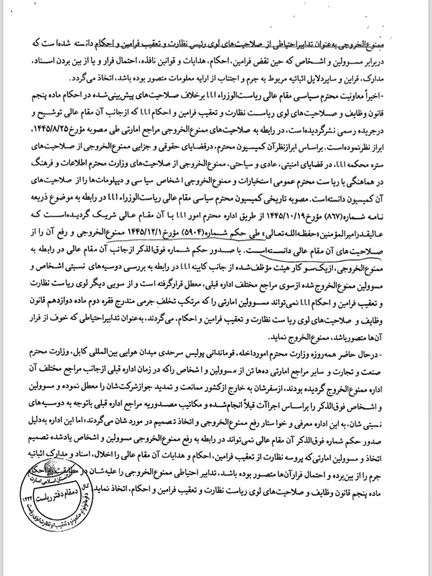 ممنوع‌الخروجی به‌عنوان تدابیر احتیاطی از صلاحیت‌های لوی رئیس نظارت و تعقیب فرامین و احکام دانسته شده‌است که
دربرابر مسوولین و اشخاص که حین نقض فرامین، احکام، هدایات و قوانین نافذه، احتمال فرار و یا از بین بردن اسناد،
مدارک، قراین و سایر دلایل اثباتیه مربوط به جرم و اجتناب از ارایه معلومات متصور بوده باشد، اتخاذ می‌گردد.
-اخیراً معاونیت محترم سیاسی مقام عالی ریاست‌الوزراء ا.ا.ا برخلاف صلاحیت‌های پیش‌بینی‌شده در احکام ماده پنجم
قانون وظایف و صلاحیت‌های لوی ریاست نظارت و تعقیب فرامین و احکام ا.ا.ا که ازجانب آن مقام عالی توشیح و
درجریده رسمی نشر گردیده‌است، در رابطه به صلاحیت‌های ممنوع‌الخروجی مراجع امارتی طی مصوبه مؤرخ ۱۴۴۵/۸/۲۵
ابراز نظر نموده‌است. براساس ابراز نظر آن کمیسیون محترم، در قضایای حقوقی و جزایی ممنوع‌الخروجی از صلاحیت‌های ستره
محکمه ا.ا.ا، در قضایای امنیتی، عادی و سیاحتی، ممنوع‌الخروجی از صلاحیت‌های وزارت محترم اطلاعات و فرهنگ
در هماهنگی با ریاست محترم عمومی استخبارات و ممنوع‌الخروجی اشخاص سیاسی و دیپلومات‌ها را از صلاحیت‌های
آن کمیسیون دانسته‌است. مصوبه تاریخی کمیسیون محترم سیاسی مقام عالی ریاست‌الوزراء ا.ا.ا در رابطه به موضوع ذریعه
نامه شماره (۸۶۷) مؤرخ ۱۴۴۵/۱۰/۱۹ از طریق اداره محترم امور ا.ا.ا با آن مقام عالی شریک گردیده‌است که
عالیقدر امیرالمؤمنین «حفظه‌الله‌تعالی» طی حکم شماره (۵۹۰۴) مؤرخ ۱۴۴۵/۱۲/۱ ممنوع‌الخروجی و رفع آن را از
صلاحیت‌های آن مقام عالی دانسته‌است. با صدور حکم شماره فوق‌الذکر ازجانب آن مقام عالی در رابطه به
ممنوع‌الخروجی، از یک‌سو کار هیئت مؤظف‌شده از جانب کابینه ا.ا.ا در رابطه به بررسی دوسیه‌های نسبتی اشخاص و
مسوولین ممنوع‌الخروج شده ازسوی مراجع مختلف اداره قبلی، معطل قرارگرفته است و از سویی دیگر لوی ریاست نظارت
و تعقیب فرامین و احکام ا.ا.ا نمی‌تواند مسوولین امارتی را که مرتکب تخلف جرمی مندرج فقره دوم ماده دوازدهم قانون
وظایف و صلاحیت‌های لوی ریاست نظارت و تعقیب فرامین و احکام، می‌گردند، به‌عنوان تدابیر احتیاطی که خوف از فرار
آن‌ها متصور باشد، ممنوع‌الخروج نماید.
-درحال حاضر همه‌روزه وزارت محترم امورداخله، قوماندانی پولیس سرحدی میدان هوایی بین‌المللی کابل، وزارت محترم
صنعت و تجارت و سایر مراجع امارتی ده‌ها تن از مسوولین و اشخاص را که در زمان اداره قبلی ازجانب مراجع مختلف آن
اداره ممنوع‌الخروج گردیده بودند، از سفرشان به خارج ازکشور ممانعت و تمدید جواز شرکت‌شان را معطل نموده و مسوولین
و اشخاص فوق‌الذکر را براساس اجراآت قبلاً انجام‌شده و مکاتیب مصدوریه مراجع اداره قبلی باتوجه به دوسیه‌های
نسبتی شان، به این اداره معرفی و خواستار رفع ممنوع‌الخروجی و اتخاذ تصمیم در مورد شان می‌گردند؛ اما این اداره به‌دلیل
صدور حکم شماره فوق‌الذکر آن مقام عالی نمی‌تواند در رابطه به رفع ممنوع‌الخروجی مسوولین و اشخاص یادشده تصمیم
اتخاذ و مسوولین امارتی که پروسه نظارت از تعقیب فرامین، احکام و هدایات آن مقام عالی را اخلال، اسناد و مدارک اثباتیه
جرم را از بین‌برده و احتمال فرار آن‌ها متصور بوده باشد، تدابیر احتیاطی ممنوع‌الخروجی را علیه‌شان در مطابقت به احکام
ماده پنجم قانون وظایف و صلاحیت‌های لوی ریاست نظارت و تعقیب فرامین و احکام، اتخاذ نماید.
دمقام دفتر ریاست